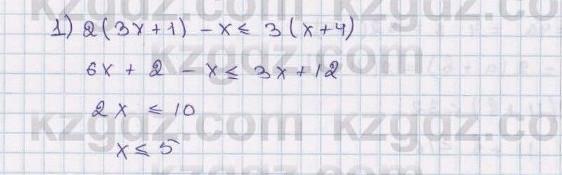 1) 2(3x+1) -x ≤ 3(x+4)
6x + 2 - x ≤ 3x+12
2x ≤ 10
x ≤ 5
kzgdz.com kzgdz.com
kzgdz.com kzgdz.com